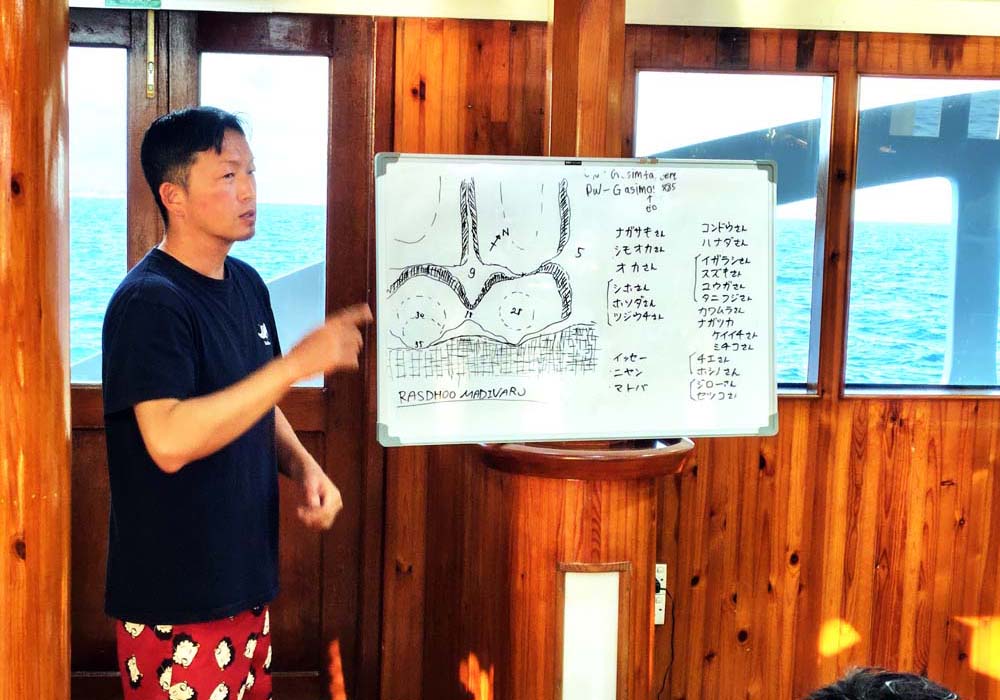 Gasimta
PW-Gasimo!
N
5
9
18
30
28
35
RASDHOO MADIVARU
ナガサキさん
シモオカさん
オカさん
シホさん
ホソダさん
ツジウチさん
イッセー
ニヤン
マトバ
コンドウさん
ハナダさん
イガランさん
スズキさん
ユウガさん
タニフジさん
カワムラさん
ナガツカ
ケイイチさん
ミチコさん
チエさん
ホシノさん
ジローさん
セツコさん